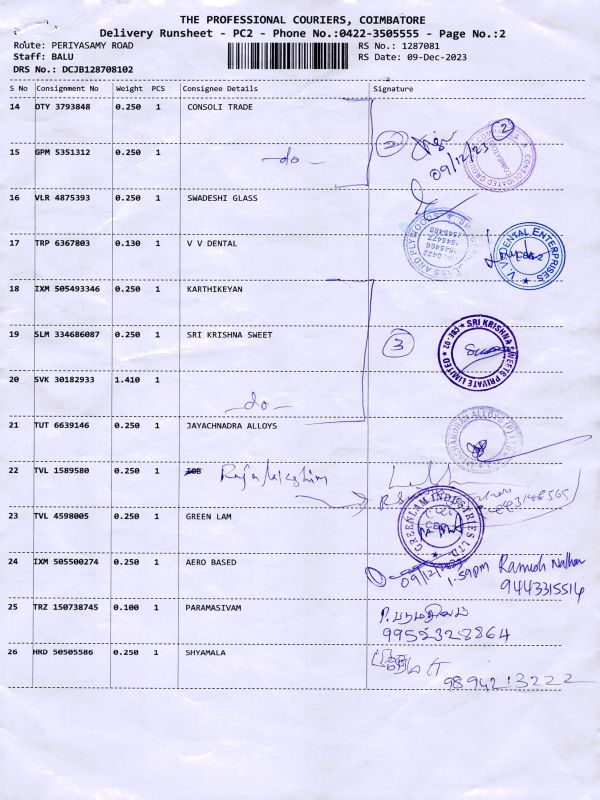 THE PROFESSIONAL COURIERS, COIMBATORE
Delivery Runsheet - PC2 - Phone No.:0422-3505555 - Page No.:2
Route: PERIYASAMY ROAD RS No.: 1287081
Staff: BALU RS Date: 09-Dec-2023
DRS No.: DCJB128708102
S No Consignment No Weight PCS Consignee Details Signature
14 OTY 3793848 0.250 1 CONSOLI TRADE
2 2
09/12/23
15 GPM 5351312 0.250 1 -do-
16 VLR 4875393 0.250 1 SWADESHI GLASS
17 TRP 6367803 0.130 1 V V DENTAL
V.V. DENTAL ENTERPRISES
18 IXM 505493346 0.250 1 KARTHIKEYAN
19 SLM 334686087 0.250 1 SRI KRISHNA SWEET
3
SRI KRISHNA SWEETS PRIVATE LIMITED
20 SVK 30182933 1.410 1
-do-
21 TUT 6639146 0.250 1 JAYACHNADRA ALLOYS
22 TVL 1589580 0.250 1 IOB
23 TVL 4598005 0.250 1 GREEN LAM
GREENLAM INDUSTRIES LTD.
24 IXM 505500274 0.250 1 AERO BASED
09/12/2023 1.59pm Ramesh Nathan
9443315514
25 TRZ 150738745 0.100 1 PARAMASIVAM
9955328864
26 HRD 50505586 0.250 1 SHYAMALA
9894213222